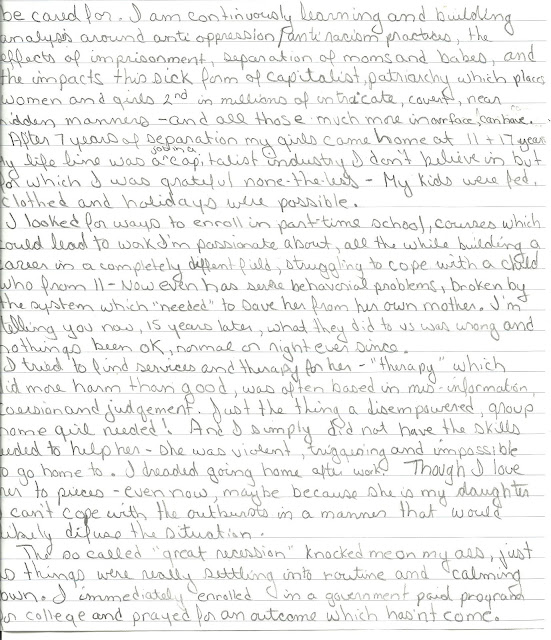 be cared for. I am continuously learning and building
analysis around anti oppression/anti racism practices, the
effects of imprisonment, separation of moms and babes, and
the impacts this sick form of capitalist, patriarchy which places
women and girls 2nd in millions of intricate, covert, near
hidden manners - and all those much more in our face, can have.
After 7 years of separation my girls came home at 11 + 17 years
My life line was a job in a capitalist industry I don't believe in but
for which I was grateful none-the-less - My kids were fed,
clothed and holidays were possible.
I looked for ways to enroll in part-time school, courses which
could lead to work I'm passionate about, all the while building a
career in a completely different field, struggling to cope with a child
who from 11 - Now even has severe behavioral problems, broken by
the system which "needed" to save her from her own mother. I'm
telling you now, 15 years later, what they did to us was wrong and
nothings been OK, normal or right ever since.
I tried to find services and therapy for her - "therapy" which
did more harm than good, was often based in mis-information,
coersion and judgement. Just the thing a disempowered, group
home girl needed! And I simply did not have the skills
needed to help her - she was violent, triggering and impossible
to go home to. I dreaded going home after work. Though I love
her to pieces - even now, maybe because she is my daughter
I can't cope with the outbursts in a manner that would
likely difuse the situation.
The so called "great recession" knocked me on my ass, just
as things were really settling into routine and calming
down. I immediately enrolled in a government paid program
for college and prayed for an outcome which hasn't come.